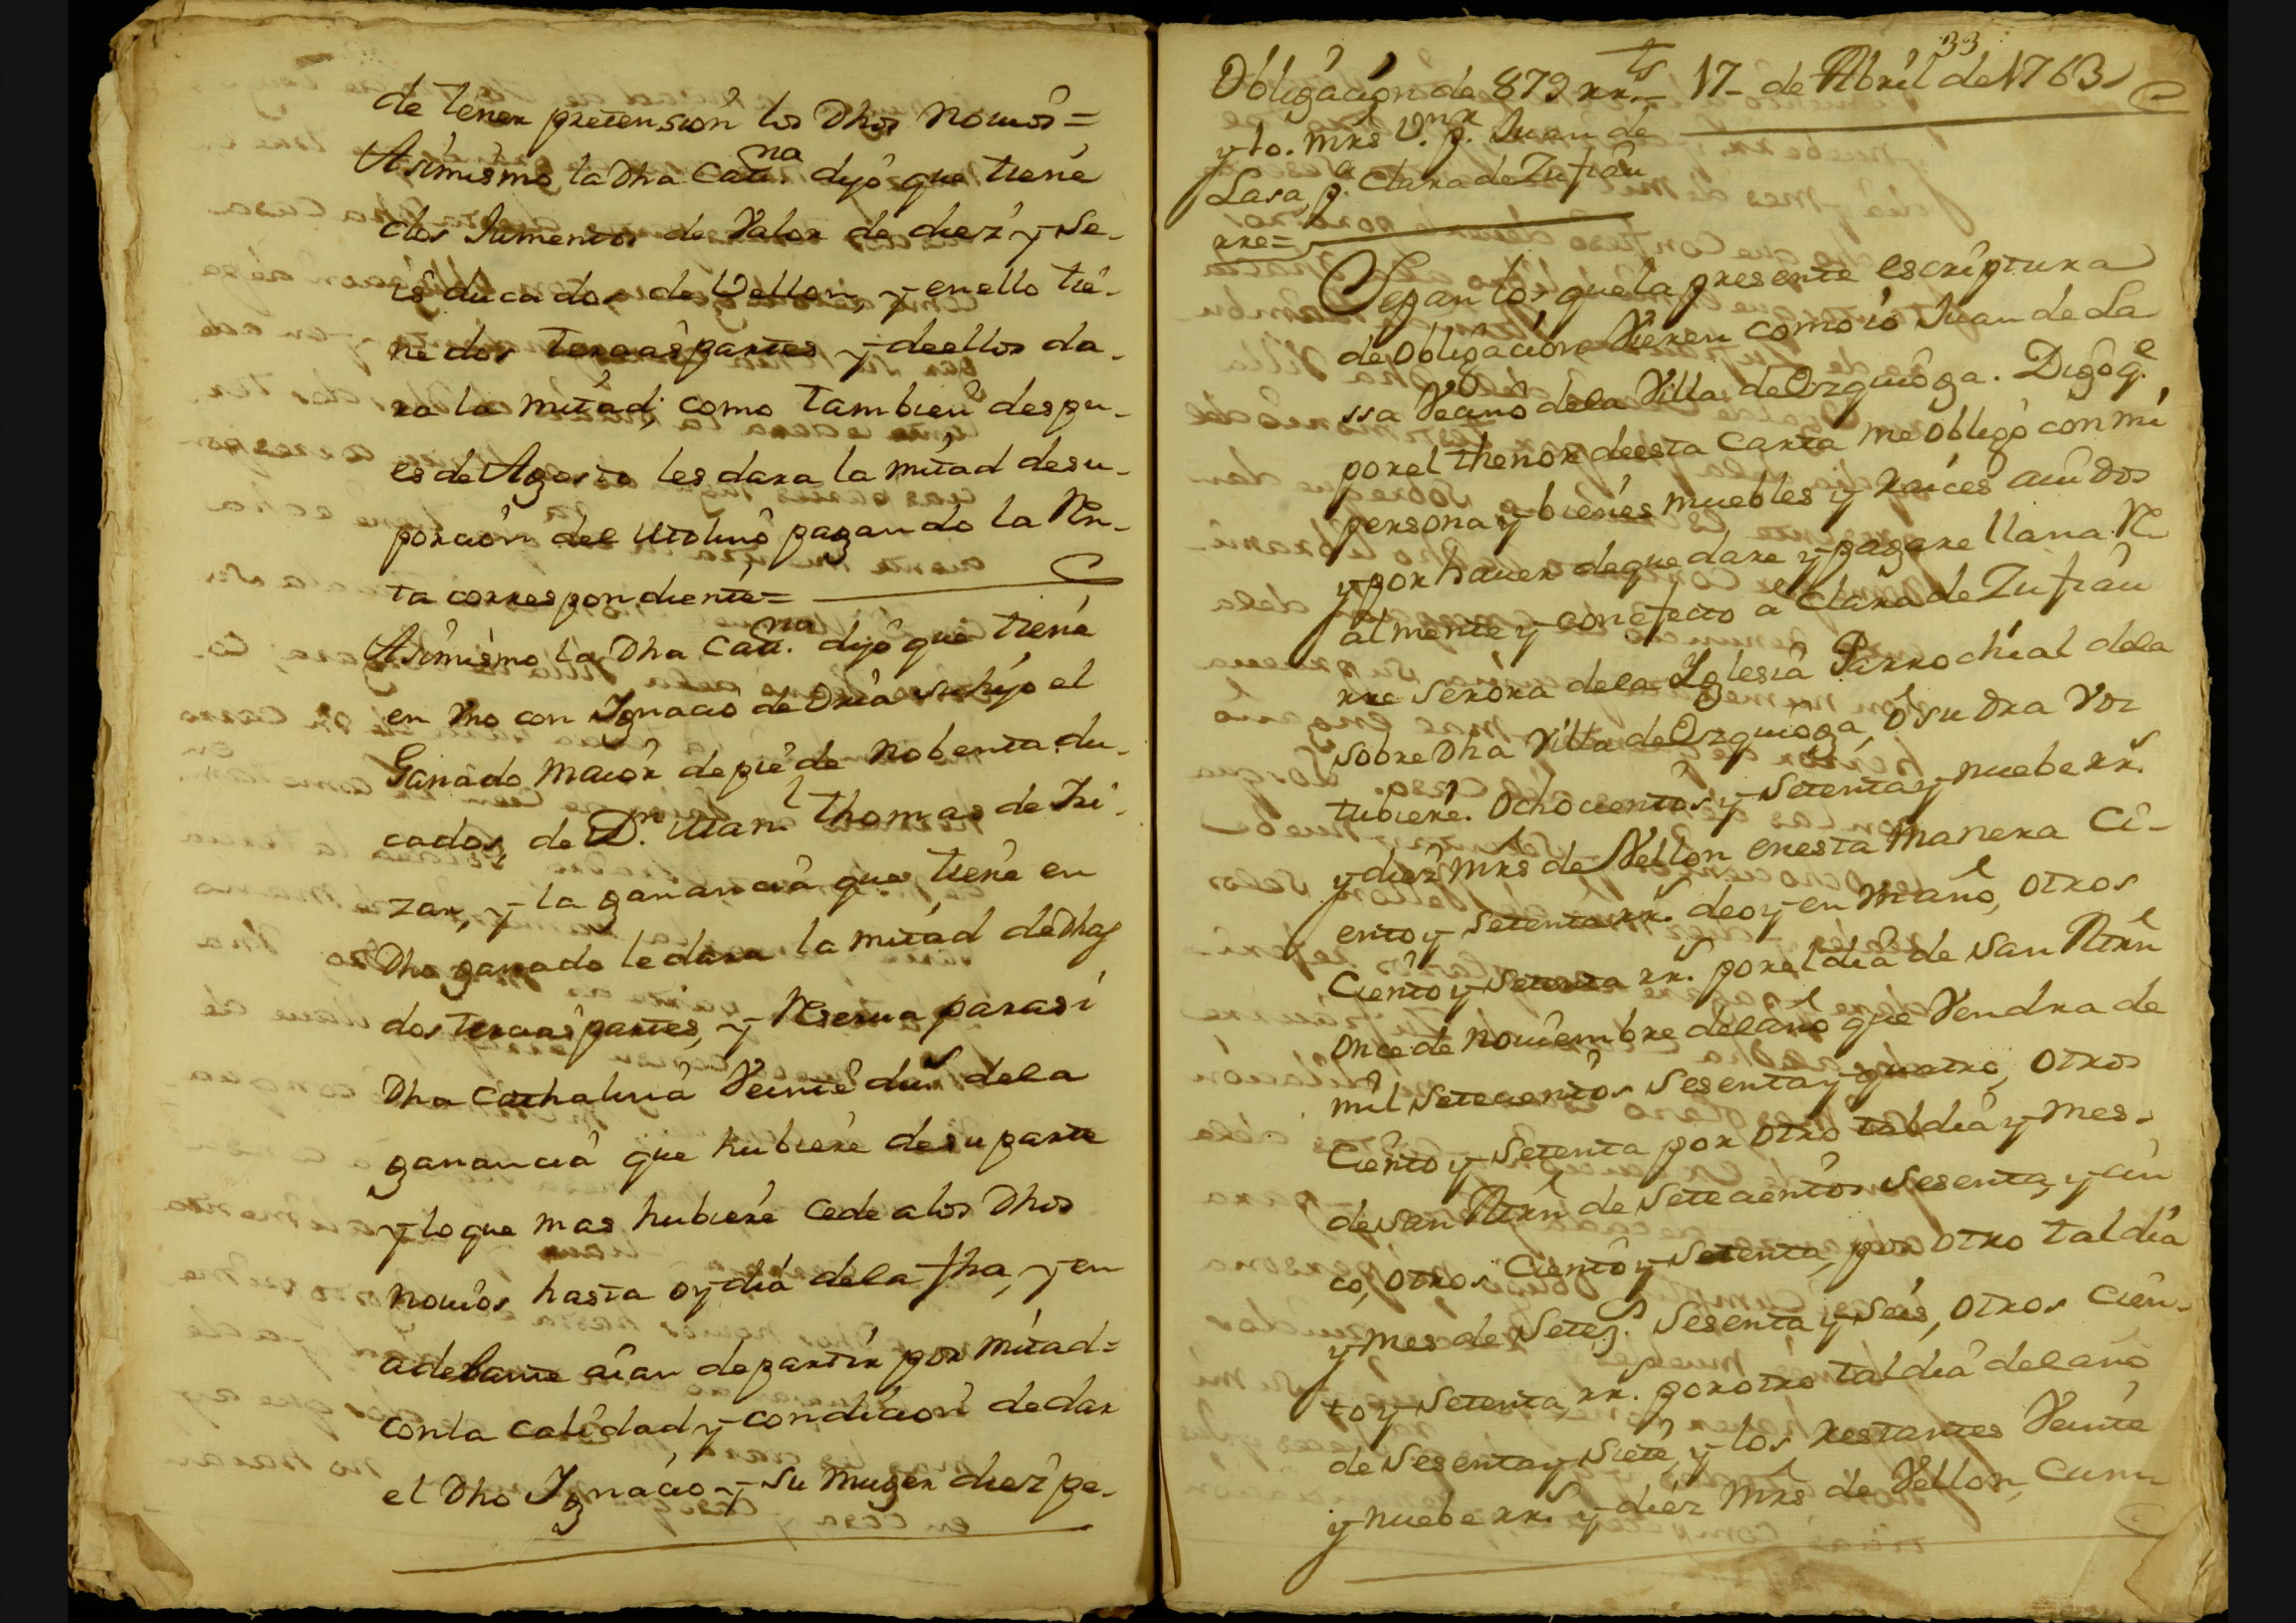 de tener pretension los Dhos novios=
Asimismo la Dha Catt.na dijo que tiene
dos Jumentos de Valor de diez y se-
is ducados, de Vellon, y en ello tie-
ne dos tercias partes y de ellos da-
ra la mitad, como tambien despu-
es de Agosto les dara la mitad de su
porcion del Molino pagando la Ren-
ta correspondiente=
Asimismo la Dha Catt.na dijo que tiene
en Vno con Ignacio de Oria su hijo el
Ganado maior de pie de nobenta du-
cados, de Dn. Man.l Thomas de Iri-
zar, y la ganancia que tiene en
Dho ganado le dara la mitad de Dhas
dos tercias partes, y Reserua para si
Dha Cathalina Veinte dus de la
ganancia que hubiere de su parte
y lo que mas hubiere cede a los Dhos
novios hasta oy dia de la fha, y en
adelante aian de partir por mitad=
con la calidad y condicion de dar
el Dho Ignacio y su muger diez pe-
33
Obligacion de 879 rr.ts 17 de Abril de 1763
y 10. mrs Vn. p.r Juan de
Lasa, p.a Clara de Zufiau
rre=
Sepan los que la presente escriptura
de obligacion Vieren como io Juan de La-
ssa Vecino de la Villa de Ozquioga. Digo q.e
por el thenor de esta Carta me obligo con mi
persona y bienes muebles y raices auidos
y por hauer de que dare y pagare llana Re-
almente y con efecto a Clara de Zufiau
rre Serora de la Iglesia Parrochial de la
sobre Dha Villa de Ozquioga, o su Dra Voz
tubiere. Ochocientos y Setenta y nuebe rr.s
y diez mrs de Vellon en esta manera Ci-
ento y Setenta rr.s de oy en Vn año, otros
Ciento y Setenta rr.s por el dia de San Mrn
once de Nouiembre del año que Vendra de
mil Setecientos Sesenta y quatro, otros
Ciento y Setenta por otro tal dia y mes
de San Mrn de Setecientos Sesenta, y cin
co, otros Ciento y Setenta, por otro tal dia
y mes de Setez.s Sesenta y Seis, otros Cien-
to y Setenta, rr.s por otro tal dia del año
de Sesenta y Siete, y los restantes Veinte
y nuebe rr.s y diez mrs de Vellon, Cum-